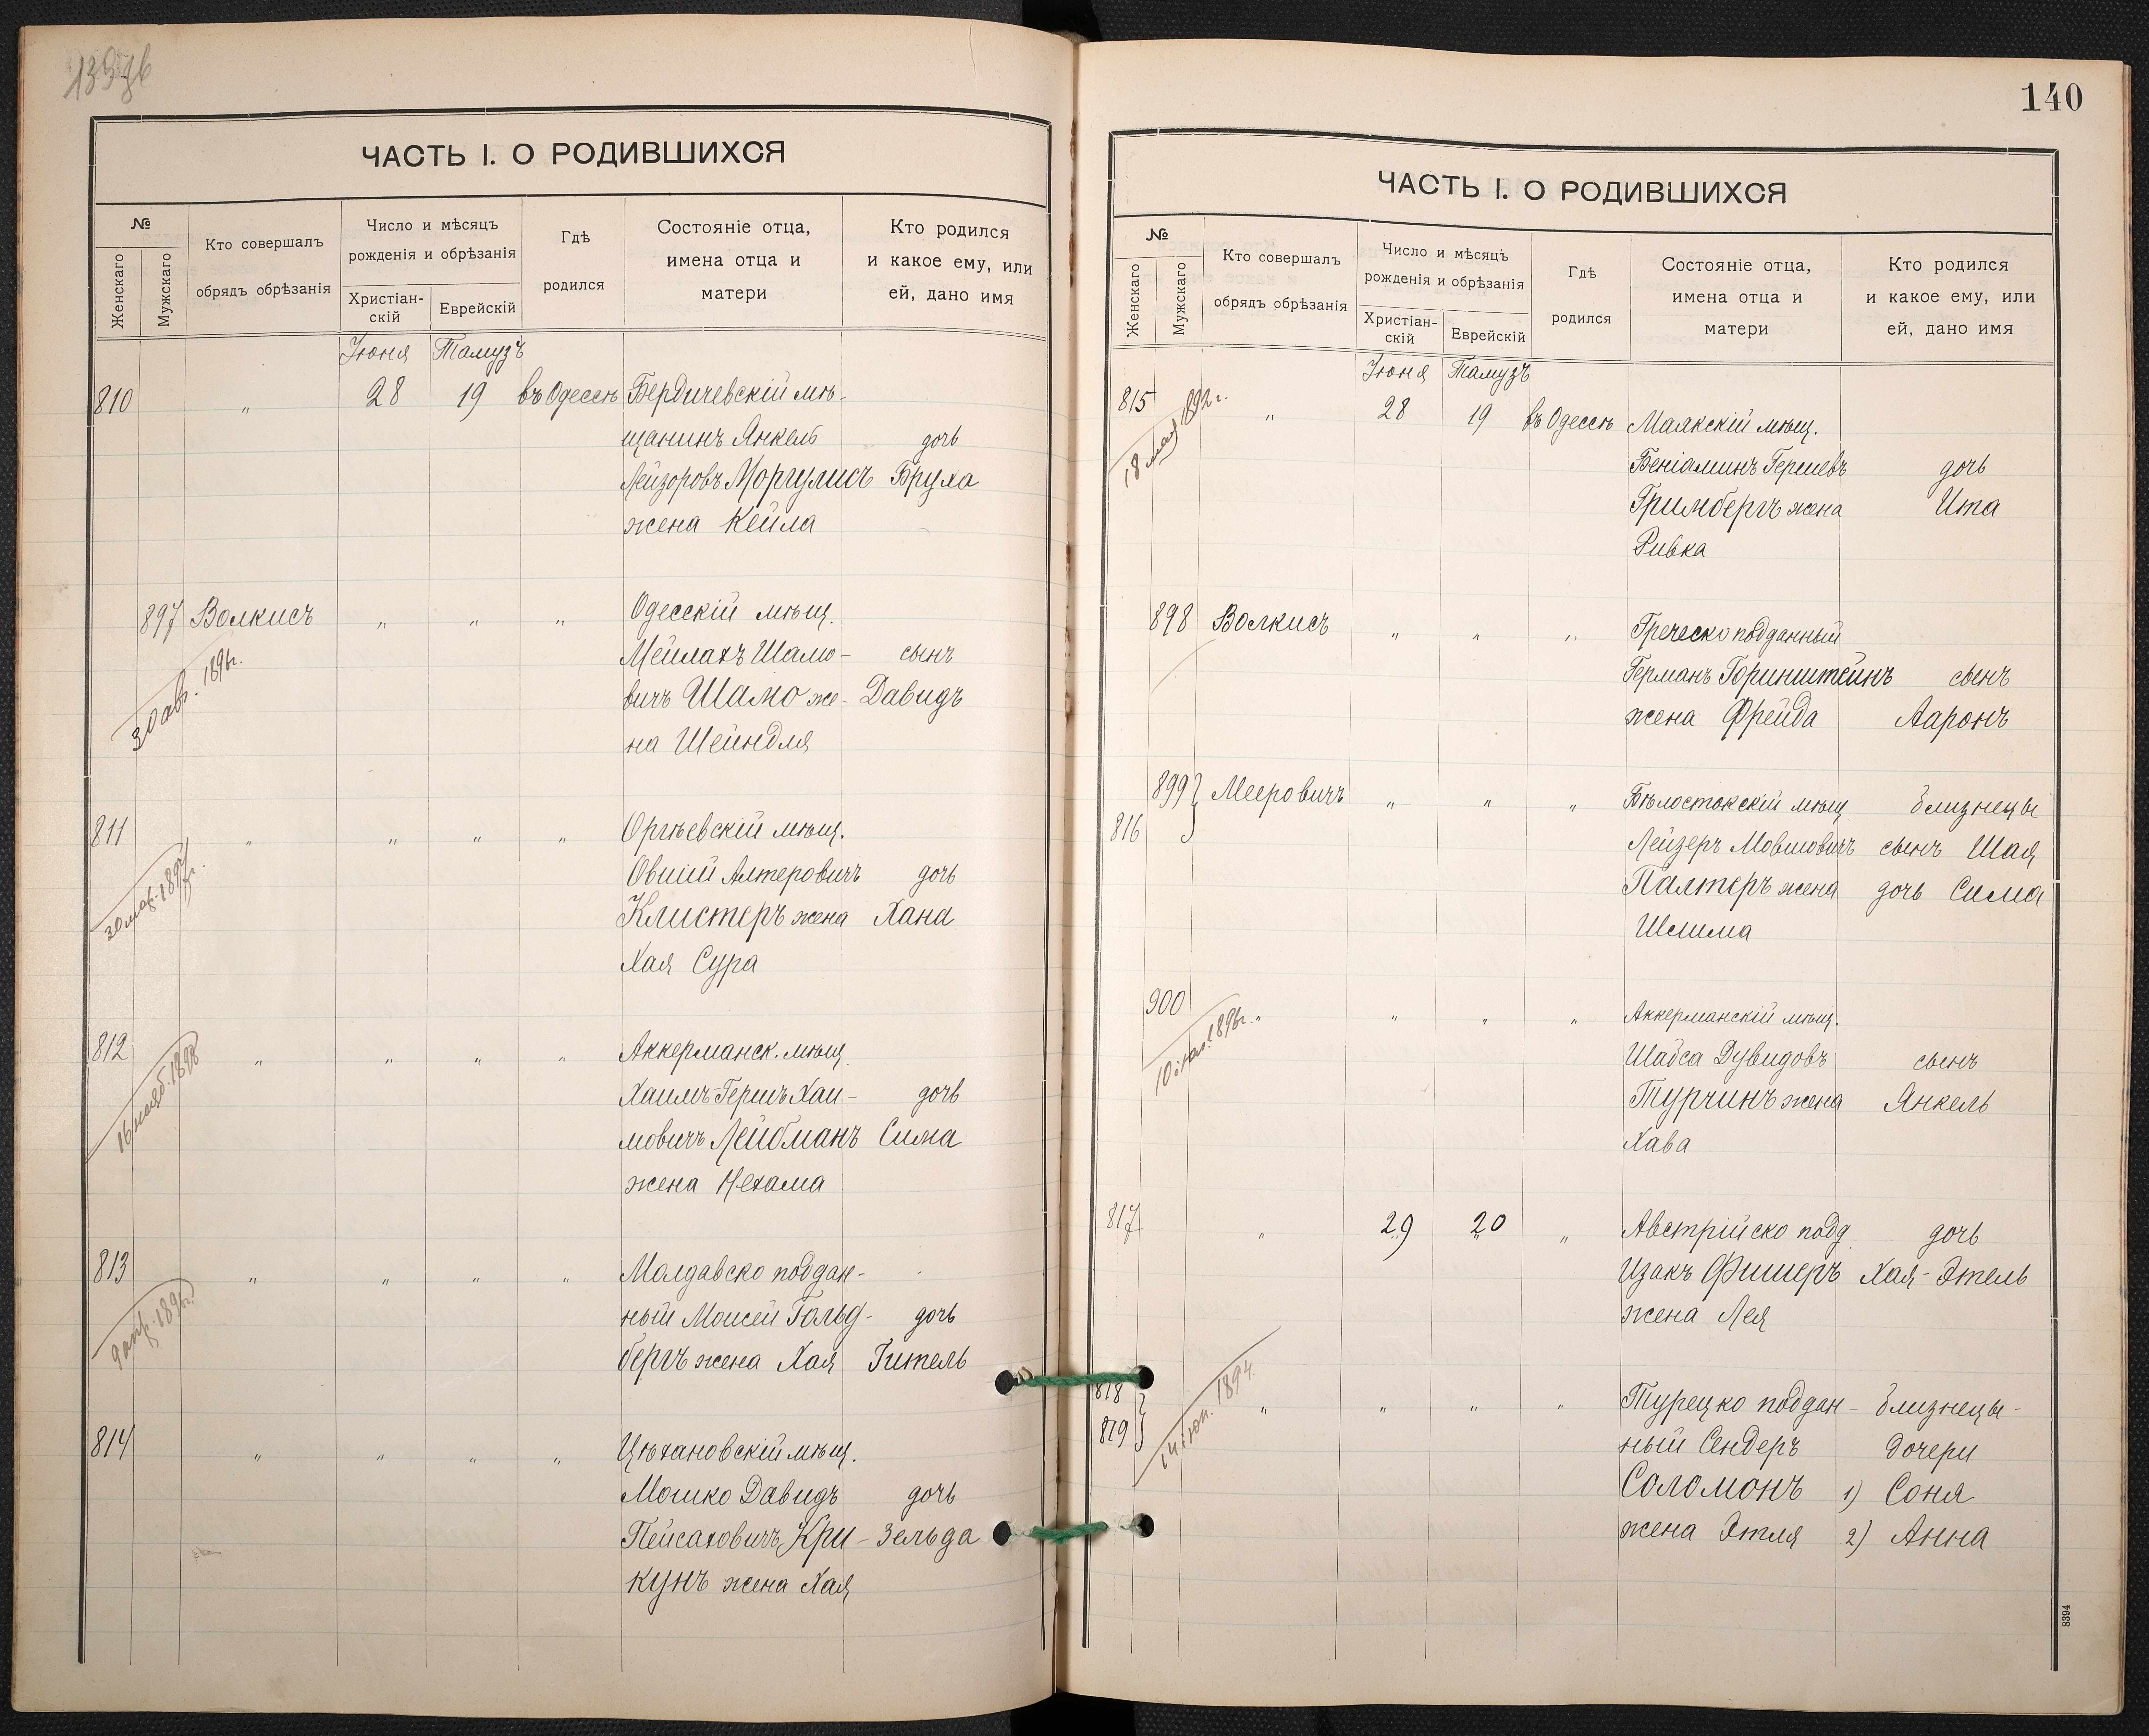 ЧАСТЬ I. О РОДИВШИХСЯ
№
Женскаго
Мужскаго
Кто совершалъ
обрядъ обрѣзанія
Число и мѣсяцъ
рожденія и обрѣзанія
Христіан-
скій
Еврейскій
Гдѣ
родился
Состояніе отца,
имена отца и
матери
Кто родился
и какое ему, или
ей, дано имя
Іюня Тамузъ
810 " 28 19 въ Одессѣ Бердичевскій мѣ-
щанинъ Янкель дочь
Лейзоровъ Моргулисъ Бруха
жена Кейла
897 Волкисъ " " " Одесскій мѣщ.
30 ав. 1896г.
Мейлахъ Шамо- сынъ
вичъ Шамо же- Давидъ
на Шейндля
811 " " " " Оргѣевскій мѣщ.
Овшій Алтеровичъ дочь
Клистеръ жена Хана
Хая Сура
812 " " " " Аккерманск. мѣщ.
16 нояб. 1898
Хаимъ-Гершъ Хаи- дочь
мовичъ Лейбманъ Сима
жена Нехама
813 " " " " Молдавско поддан-
9 апр. 1896г.
ный Моисей Гольд- дочь
бергъ жена Хая Гитель
814 " " " " Цѣхановскій мѣщ.
Мошко Давидъ дочь
Пейсаховичъ Кри- Зельда
кунъ жена Хая
140
ЧАСТЬ I. О РОДИВШИХСЯ
№
Женскаго
Мужскаго
Кто совершалъ
обрядъ обрѣзанія
Число и мѣсяцъ
рожденія и обрѣзанія
Христіан-
скій
Еврейскій
Гдѣ
родился
Состояніе отца,
имена отца и
матери
Кто родился
и какое ему, или
ей, дано имя
Іюня Тамузъ
815 " 28 19 въ Одессѣ Маякскій мѣщ.
18 мая 1892г.
Беніаминъ Гершевъ дочь
Гримбергъ жена Ита
Ривка
898 Волкисъ " " " Греческо подданный
Германъ Горинштейнъ сынъ
жена Фрейда Ааронъ
899 Мееровичъ " " " Бѣлостокскій мѣщ. близнецы
816 Лейзеръ Мовшовичъ сынъ Шая
Палтеръ жена дочь Сима
Шлима
900 " " " " Аккерманскій мѣщ.
1896г.
Шабса Дувидовъ сынъ
Турчинъ жена Янкель
Хава
817 " 29 20 " Австрійско подд. дочь
Изакъ Фишеръ Хая-Этель
жена Лея
818 " " " " Турецко поддан- близнецы-
819 ный Сендеръ дочери
14 іюн. 1894
Соломонъ 1) Соня
жена Этля 2) Анна
8394